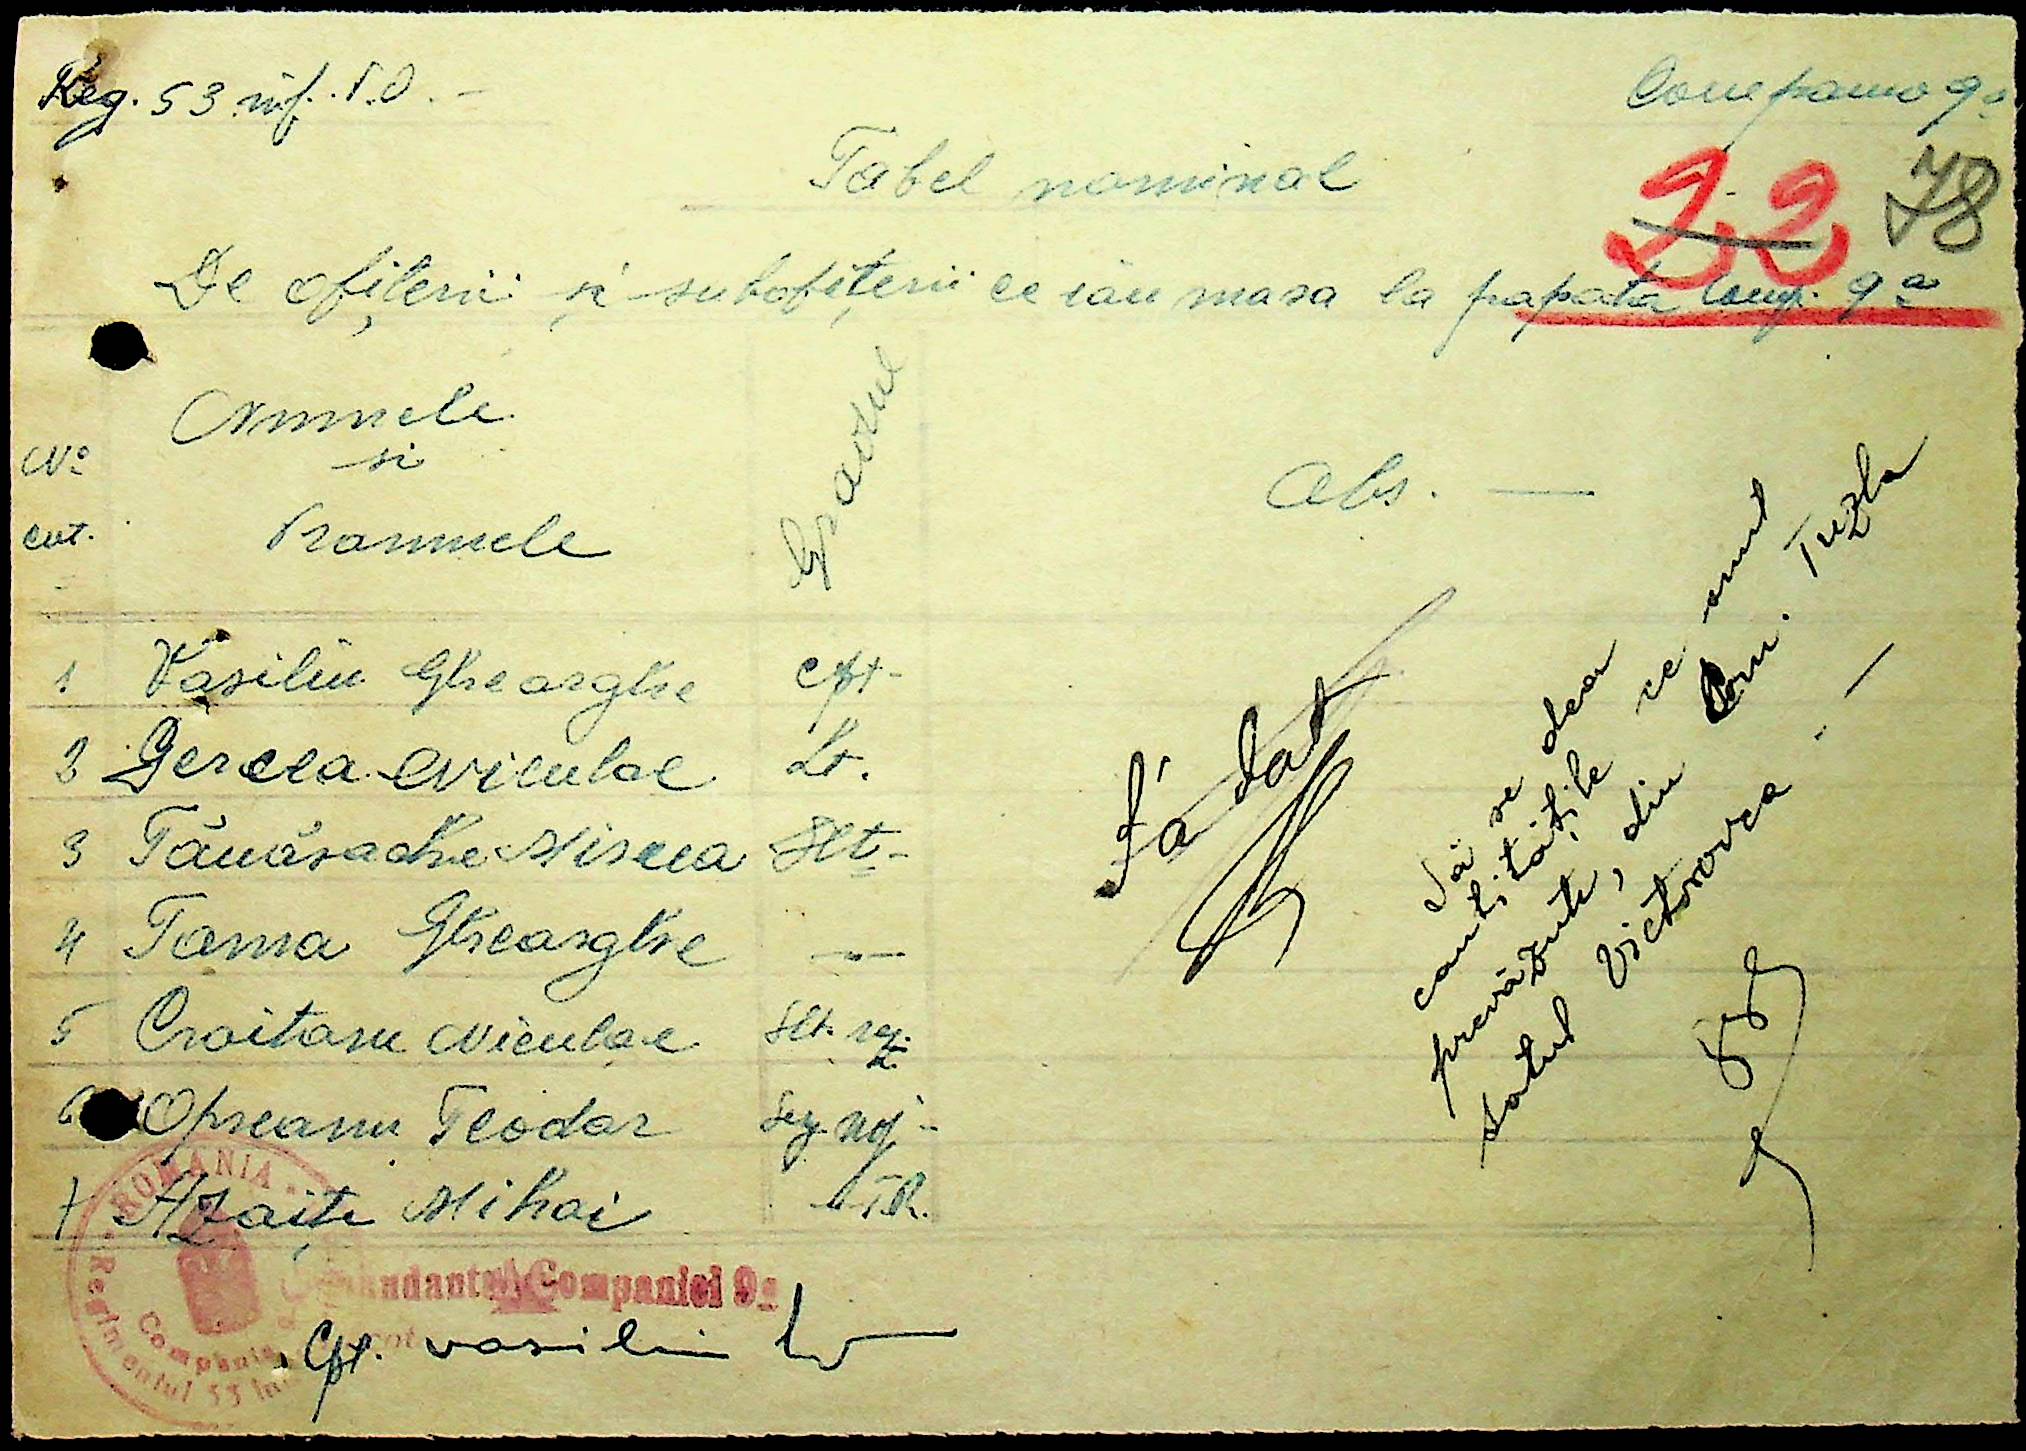 Reg. 53 inf. P.O. -
Compania 9a
Tabel nominal
22 78
De ofițerii și subofițerii ce iau masa la popota Comp. 9a
No
crt.
Numele
si
Pronumele
Gradul
Obs. —
1 Vasiliu Gheorghe Cpt-
2 Gercea Niculae Lt.
3 Tănăsache Mircea Slt-
4 Toma Gheorghe —
5 Croitoru Niculae Slt. rez.
6 Opreanu Teodor
7 Azoiți Mihai T.R.
S'a dat
Să se dea
cantitățile ce sunt
prevăzute, din Com. Tuzla
satul Victorovca. —
ROMANIA
Regimentul 53 Inf
Compania
Comandantul Companiei 9a
Cpt. Vasiliu